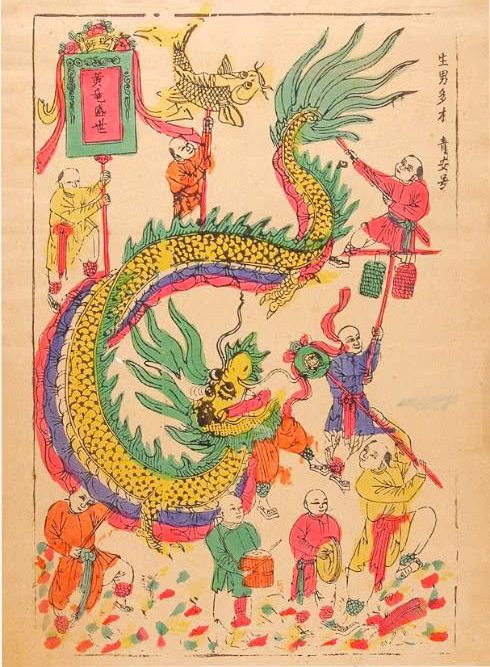 黄竜盛世
生男多才 青安号